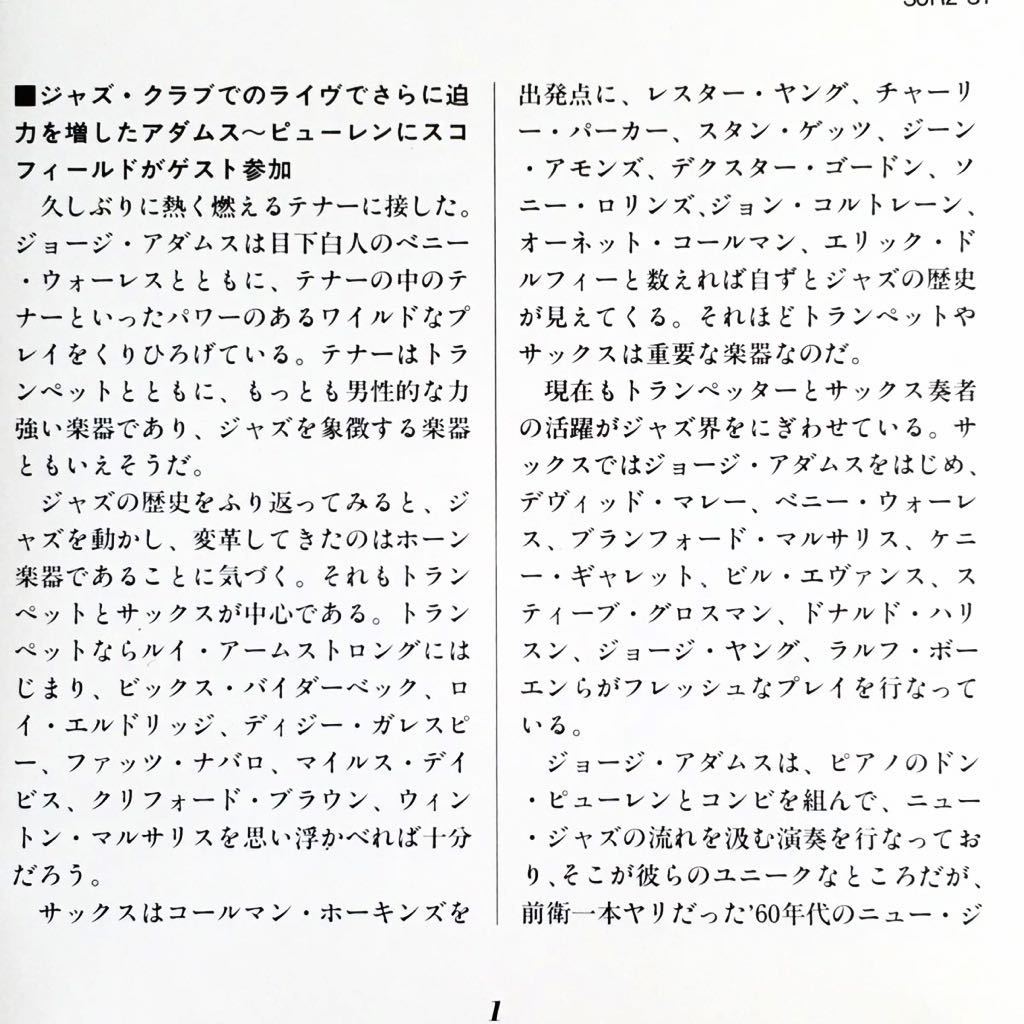 ■ジャズ・クラブでのライヴでさらに迫
力を増したアダムス〜ピューレンにスコ
フィールドがゲスト参加
久しぶりに熱く燃えるテナーに接した。
ジョージ・アダムスは目下白人のベニー
・ウォーレスとともに、テナーの中のテ
ナーといったパワーのあるワイルドなプ
レイをくりひろげている。テナーはトラ
ンペットとともに、もっとも男性的な力
強い楽器であり、ジャズを象徴する楽器
ともいえそうだ。
ジャズの歴史をふり返ってみると、ジ
ャズを動かし、変革してきたのはホーン
楽器であることに気づく。それもトラン
ペットとサックスが中心である。トラン
ペットならルイ・アームストロングには
じまり、ビックス・バイダーベック、ロ
イ・エルドリッジ、ディジー・ガレスピ
ー、ファッツ・ナバロ、マイルス・デイ
ビス、クリフォード・ブラウン、ウィン
トン・マルサリスを思い浮かべれば十分
だろう。
サックスはコールマン・ホーキンズを
出発点に、レスター・ヤング、チャーリ
ー・パーカー、スタン・ゲッツ、ジーン
・アモンズ、デクスター・ゴードン、ソ
ニー・ロリンズ、ジョン・コルトレーン、
オーネット・コールマン、エリック・ド
ルフィーと数えれば自ずとジャズの歴史
が見えてくる。それほどトランペットや
サックスは重要な楽器なのだ。
現在もトランペッターとサックス奏者
の活躍がジャズ界をにぎわせている。サ
ックスではジョージ・アダムスをはじめ、
デヴィッド・マレー、ベニー・ウォーレ
ス、ブランフォード・マルサリス、ケニ
ー・ギャレット、ビル・エヴァンス、ス
ティーブ・グロスマン、ドナルド・ハリ
スン、ジョージ・ヤング、ラルフ・ボー
エンらがフレッシュなプレイを行なって
いる。
ジョージ・アダムスは、ピアノのドン
・ピューレンとコンビを組んで、ニュー
・ジャズの流れを汲む演奏を行なってお
り、そこが彼らのユニークなところだが、
前衛一本ヤリだった'60年代のニュー・ジ
1